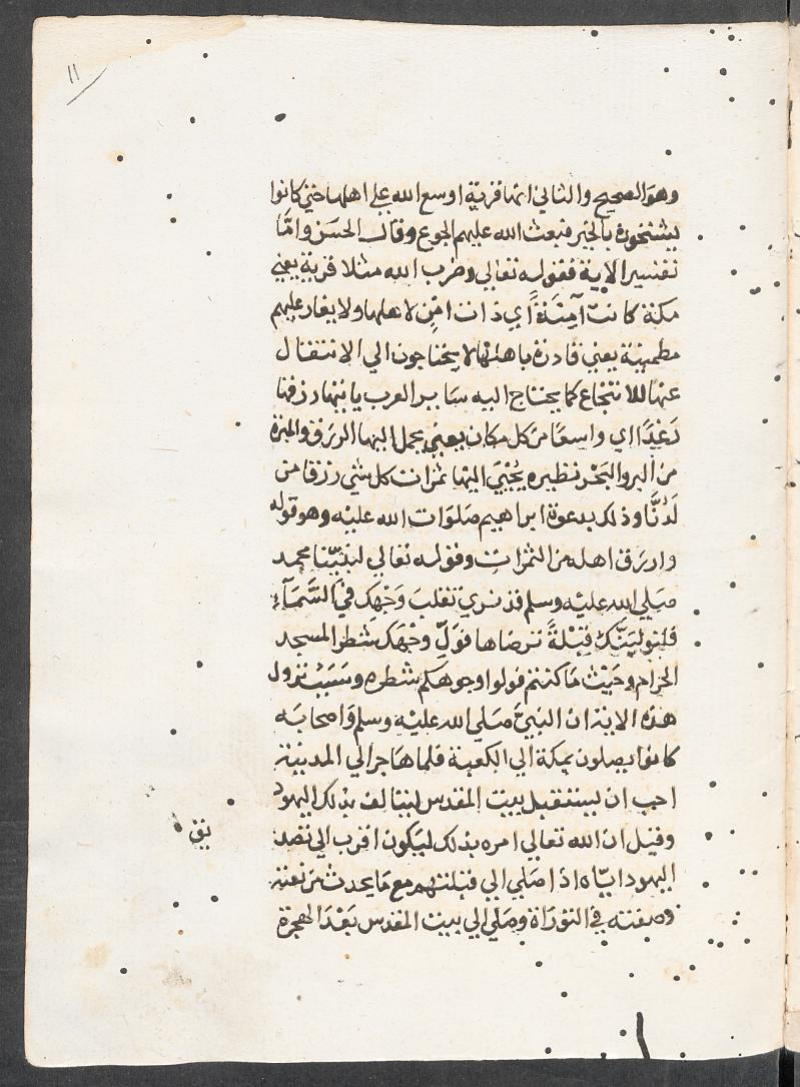 ١١
وهو الصحيح والثاني انها قرية اوسع الله على اهلها حتى كانوا
يستنجون بالخبز فبعث الله عليهم الجوع وقال الحسن واما
تفسير الاية فقوله تعالى وضرب الله مثلا قرية يعني
مكة كانت آمنة اي ذات امن لاهلها ولا يغار عليهم
مطمينة يعني قارة باهلها لا يحتاجون الي الانتقال
عنها للانتجاع كما يحتاج اليه ساير العرب ياتيها رزقها
رغدا اي واسعا من كل مكان يعني يحمل اليها الرزق والميرة
من البر والبحر نظيره يجبي اليها ثمرات كل شي رزقا من
لدنا وذلك بدعوة ابراهيم صلوات الله عليه وهو قوله
وارزق اهله من الثمرات وقوله تعالي لنبينا محمد
صلي الله عليه وسلم قد نري تقلب وجهك في السماء
فلنولينك قبلة ترضاها فول وجهك شطر المسجد
الحرام وحيث ما كنتم فولوا وجوهكم شطره وسبب نزول
هذه الاية ان النبي صلي الله عليه وسلم واصحابه
كانوا يصلون بمكة الي الكعبة فلما هاجر الي المدينة
احب ان يستقبل بيت المقدس ليتالف بذلك اليهود
وقيل ان الله تعالي امره بذلك ليكون اقرب الي تصد
يق
اليهود اياه اذا صلي الي قبلتهم مع ما يجدون من نعته
وصفته في التوراة وصلي الي بيت المقدس بعد الهجرة